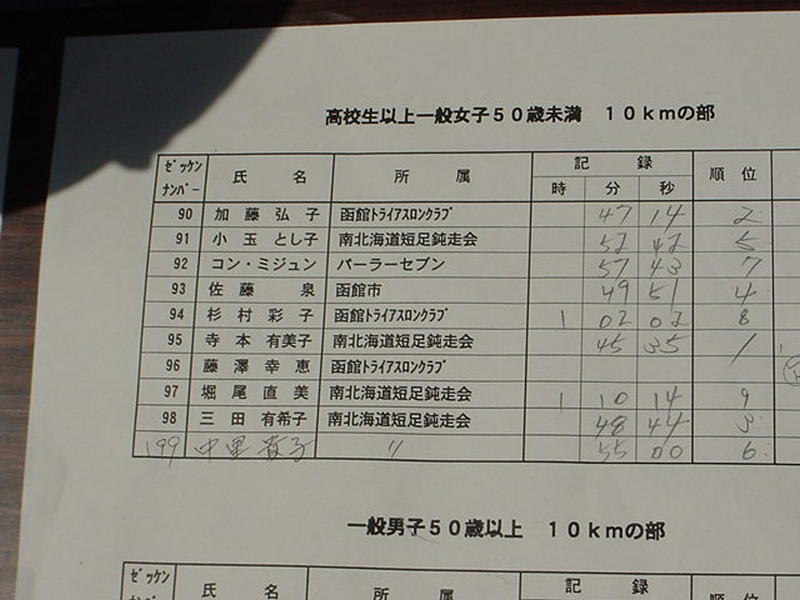 高校生以上一般女子50歳未満 10kmの部
ｾﾞｯｹﾝﾅﾝﾊﾞｰ 氏名 所属 記録 順位
時 分 秒
90 加藤弘子 函館ﾄﾗｲｱｽﾛﾝｸﾗﾌﾞ 47 14 2
91 小玉とし子 南北海道短足鈍走会 52 42 5
92 コン・ミジュン パーラーセブン 57 43 7
93 佐藤泉 函館市 49 51 4
94 杉村彩子 函館ﾄﾗｲｱｽﾛﾝｸﾗﾌﾞ 1 02 02 8
95 寺本有美子 南北海道短足鈍走会 45 35 1
96 藤澤幸恵 函館ﾄﾗｲｱｽﾛﾝｸﾗﾌﾞ
97 堀尾直美 南北海道短足鈍走会 1 10 14 9
98 三田有希子 南北海道短足鈍走会 48 44 3
199 中里貴子 〃 55 00 6
一般男子50歳以上 10kmの部
ｾﾞｯｹﾝ 氏名 所属 記録 順位